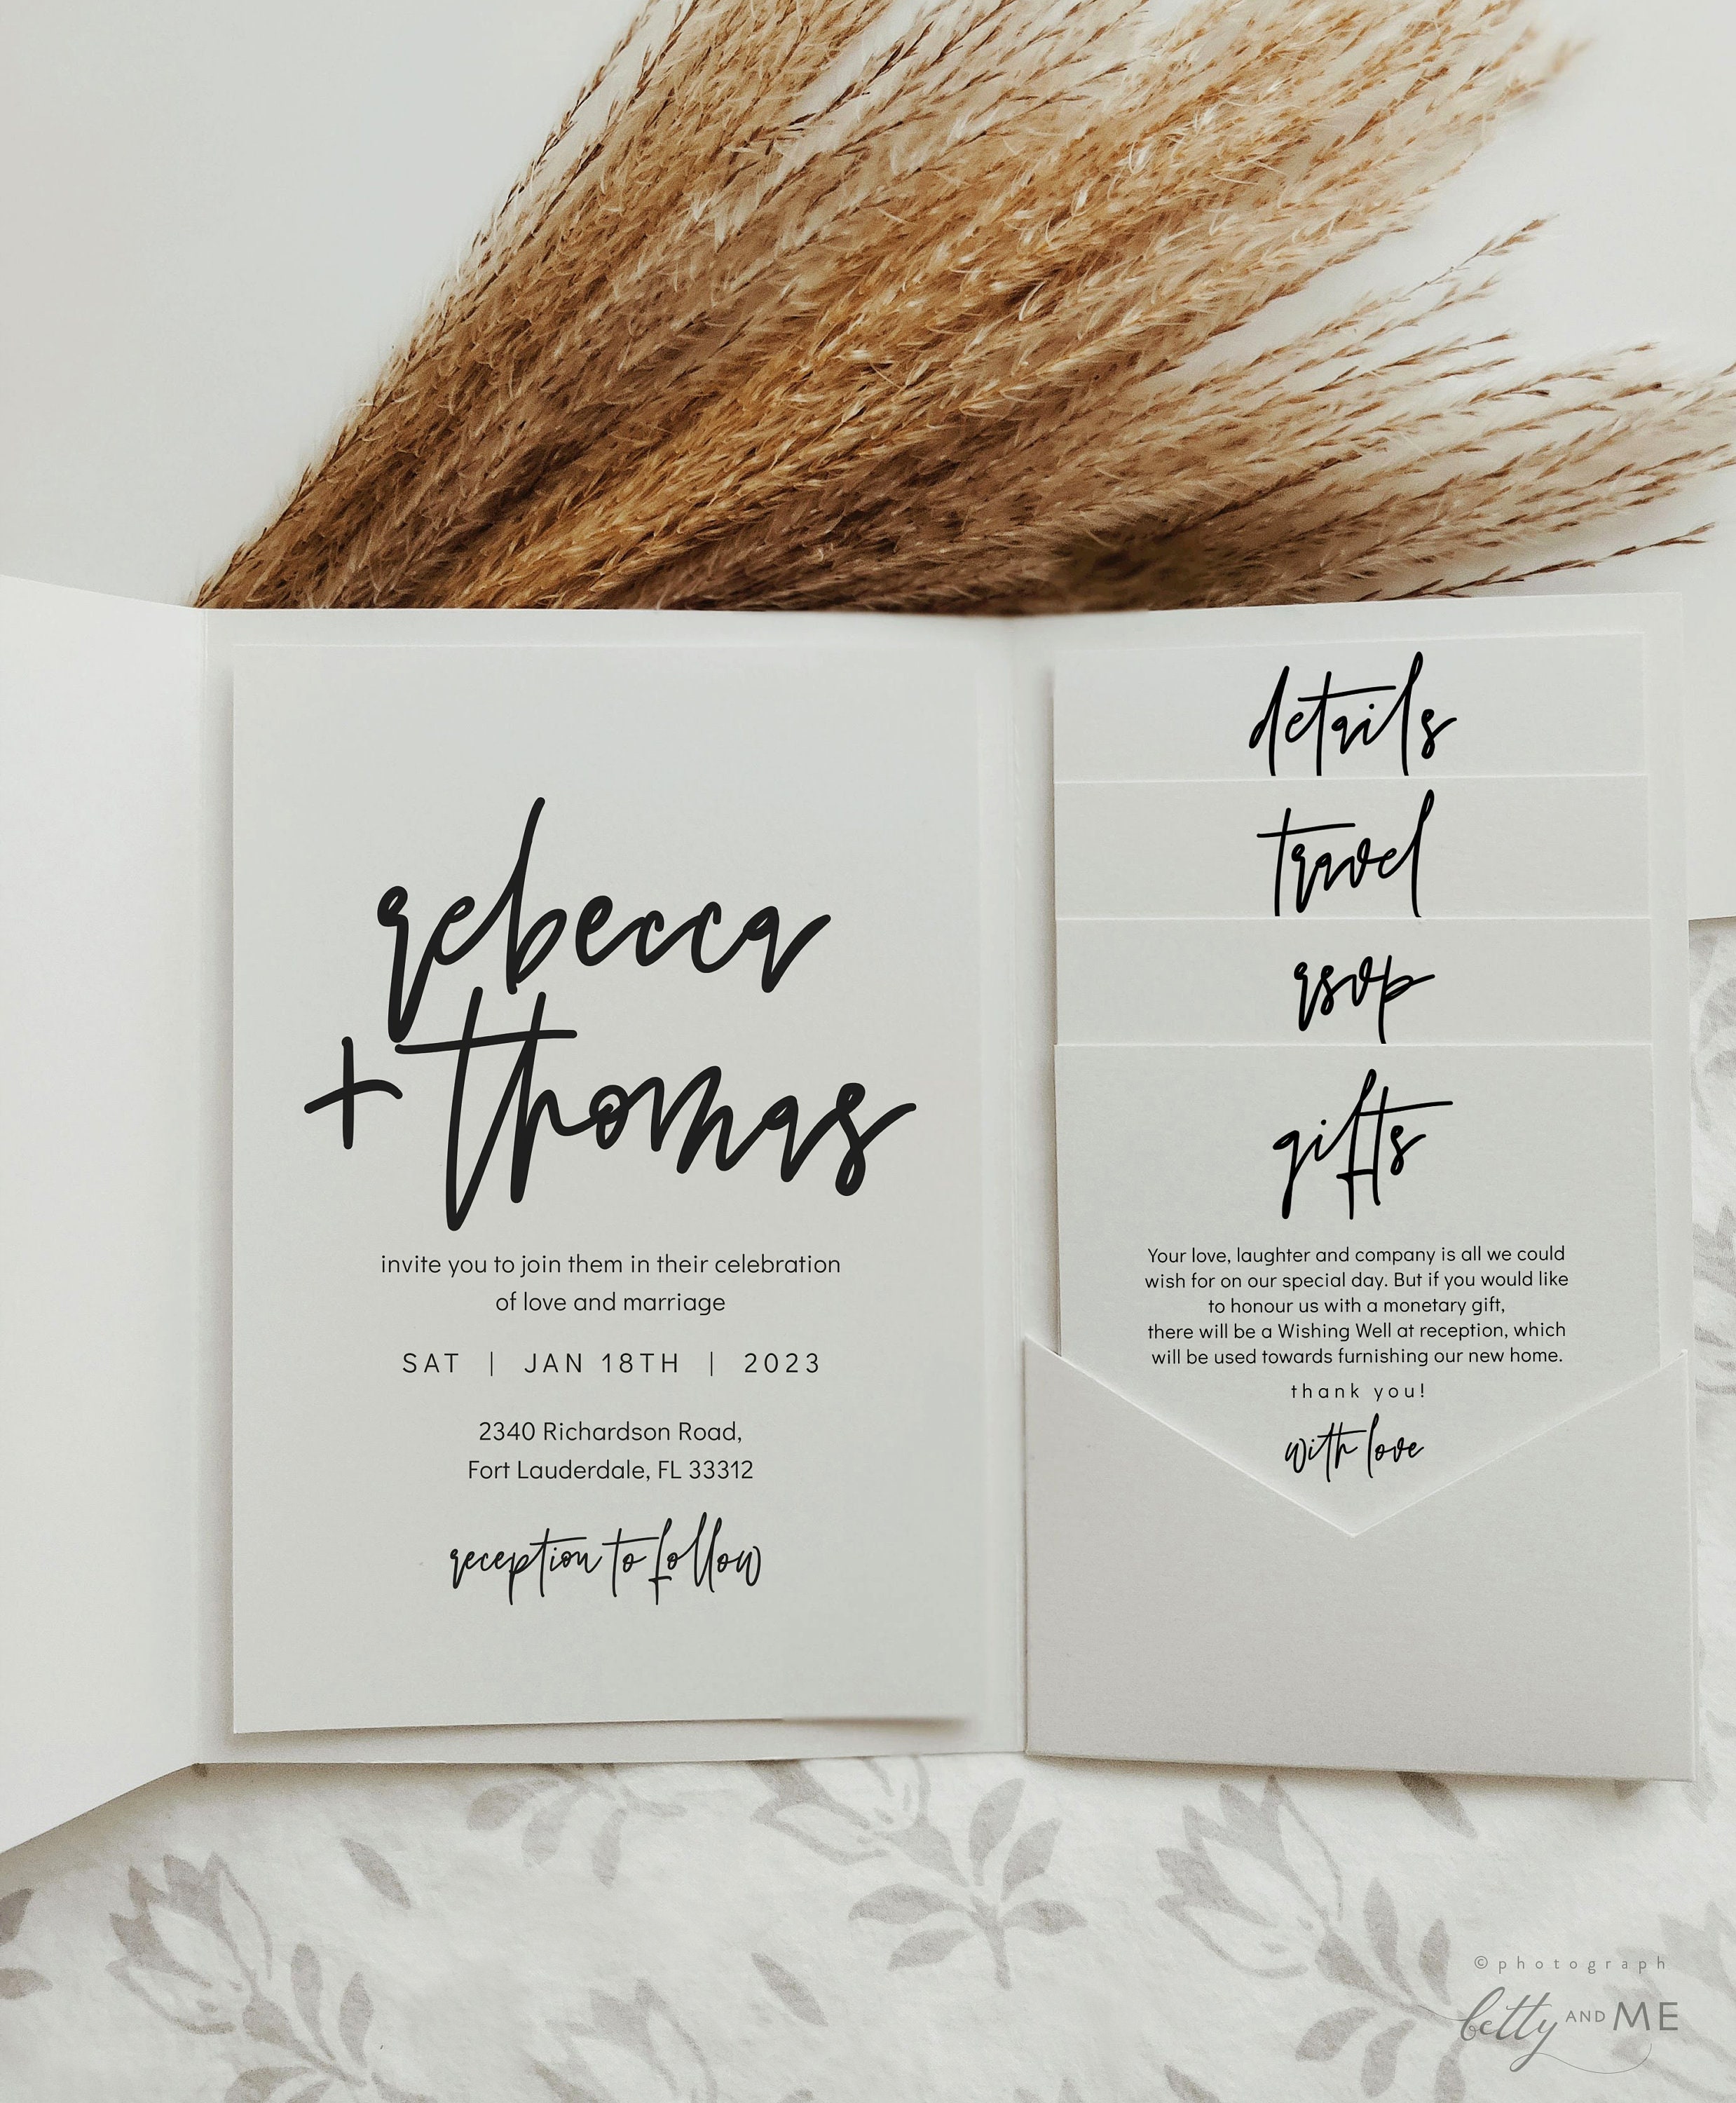 rebecca
+ thomas
invite you to join them in their celebration
of love and marriage
SAT | JAN 18TH | 2023
2340 Richardson Road,
Fort Lauderdale, FL 33312
reception to follow
details
travel
rsvp
gifts
Your love, laughter and company is all we could
wish for on our special day. But if you would like
to honour us with a monetary gift,
there will be a Wishing Well at reception, which
will be used towards furnishing our new home.
thank you!
with love
©photograph
betty AND ME